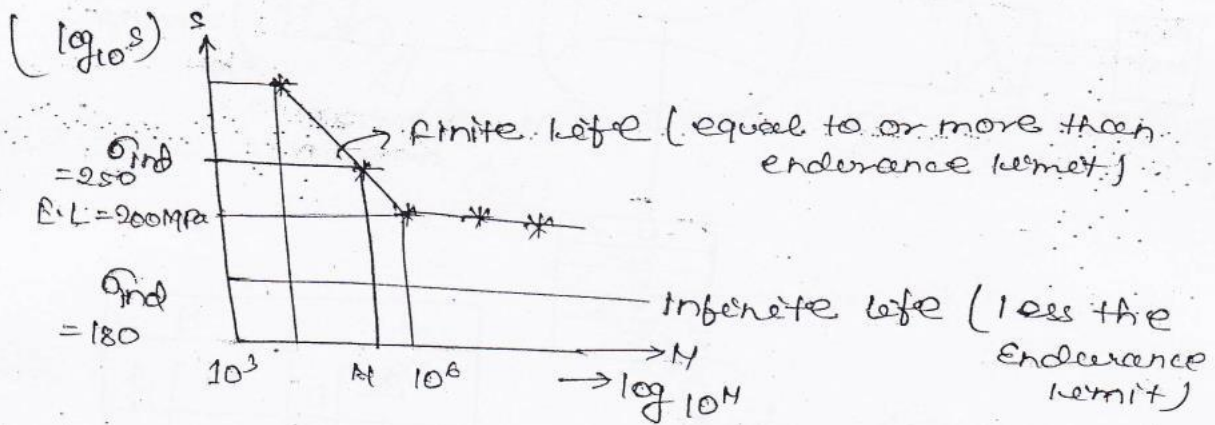 (log₁₀S) S
finite life (equal to or more than
endurance limit)
σind
=250
E.L = 200MPa
σind
=180
Infinite life (less the
Endurance
limit)
10³ N 10⁶ → N
→ log₁₀N